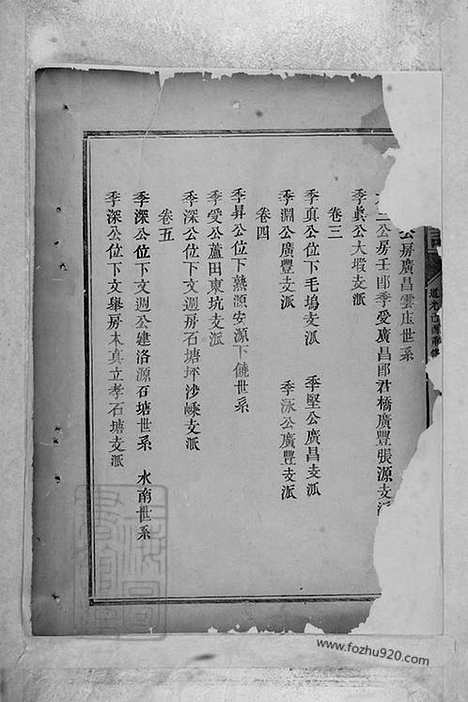 公房廣昌雲庄世系
公房壬郎季愛廣昌郎君橋廣豐張源支派
季眞公大塅支派
卷三
季眞公位下毛塢支派 季堅公廣昌支派
季淵公廣豐支派 季泳公廣豐支派
卷四
季昇公位下熟源安源下饒世系
季愛公蘆田東坑支派
季深公位下文週房石塘坪沙㟙支派
卷五
季深公位下文週公建洛源石塘世系 水南世系
季深公位下文舉房木真立孝石塘支派
www.fozhu920.com